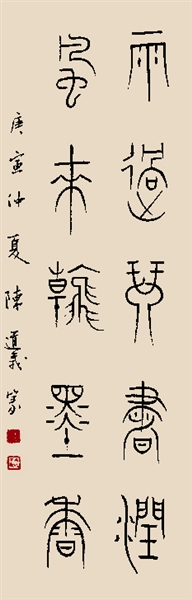 雨過琴書潤
風來翰墨香
庚寅仲夏陳道義篆